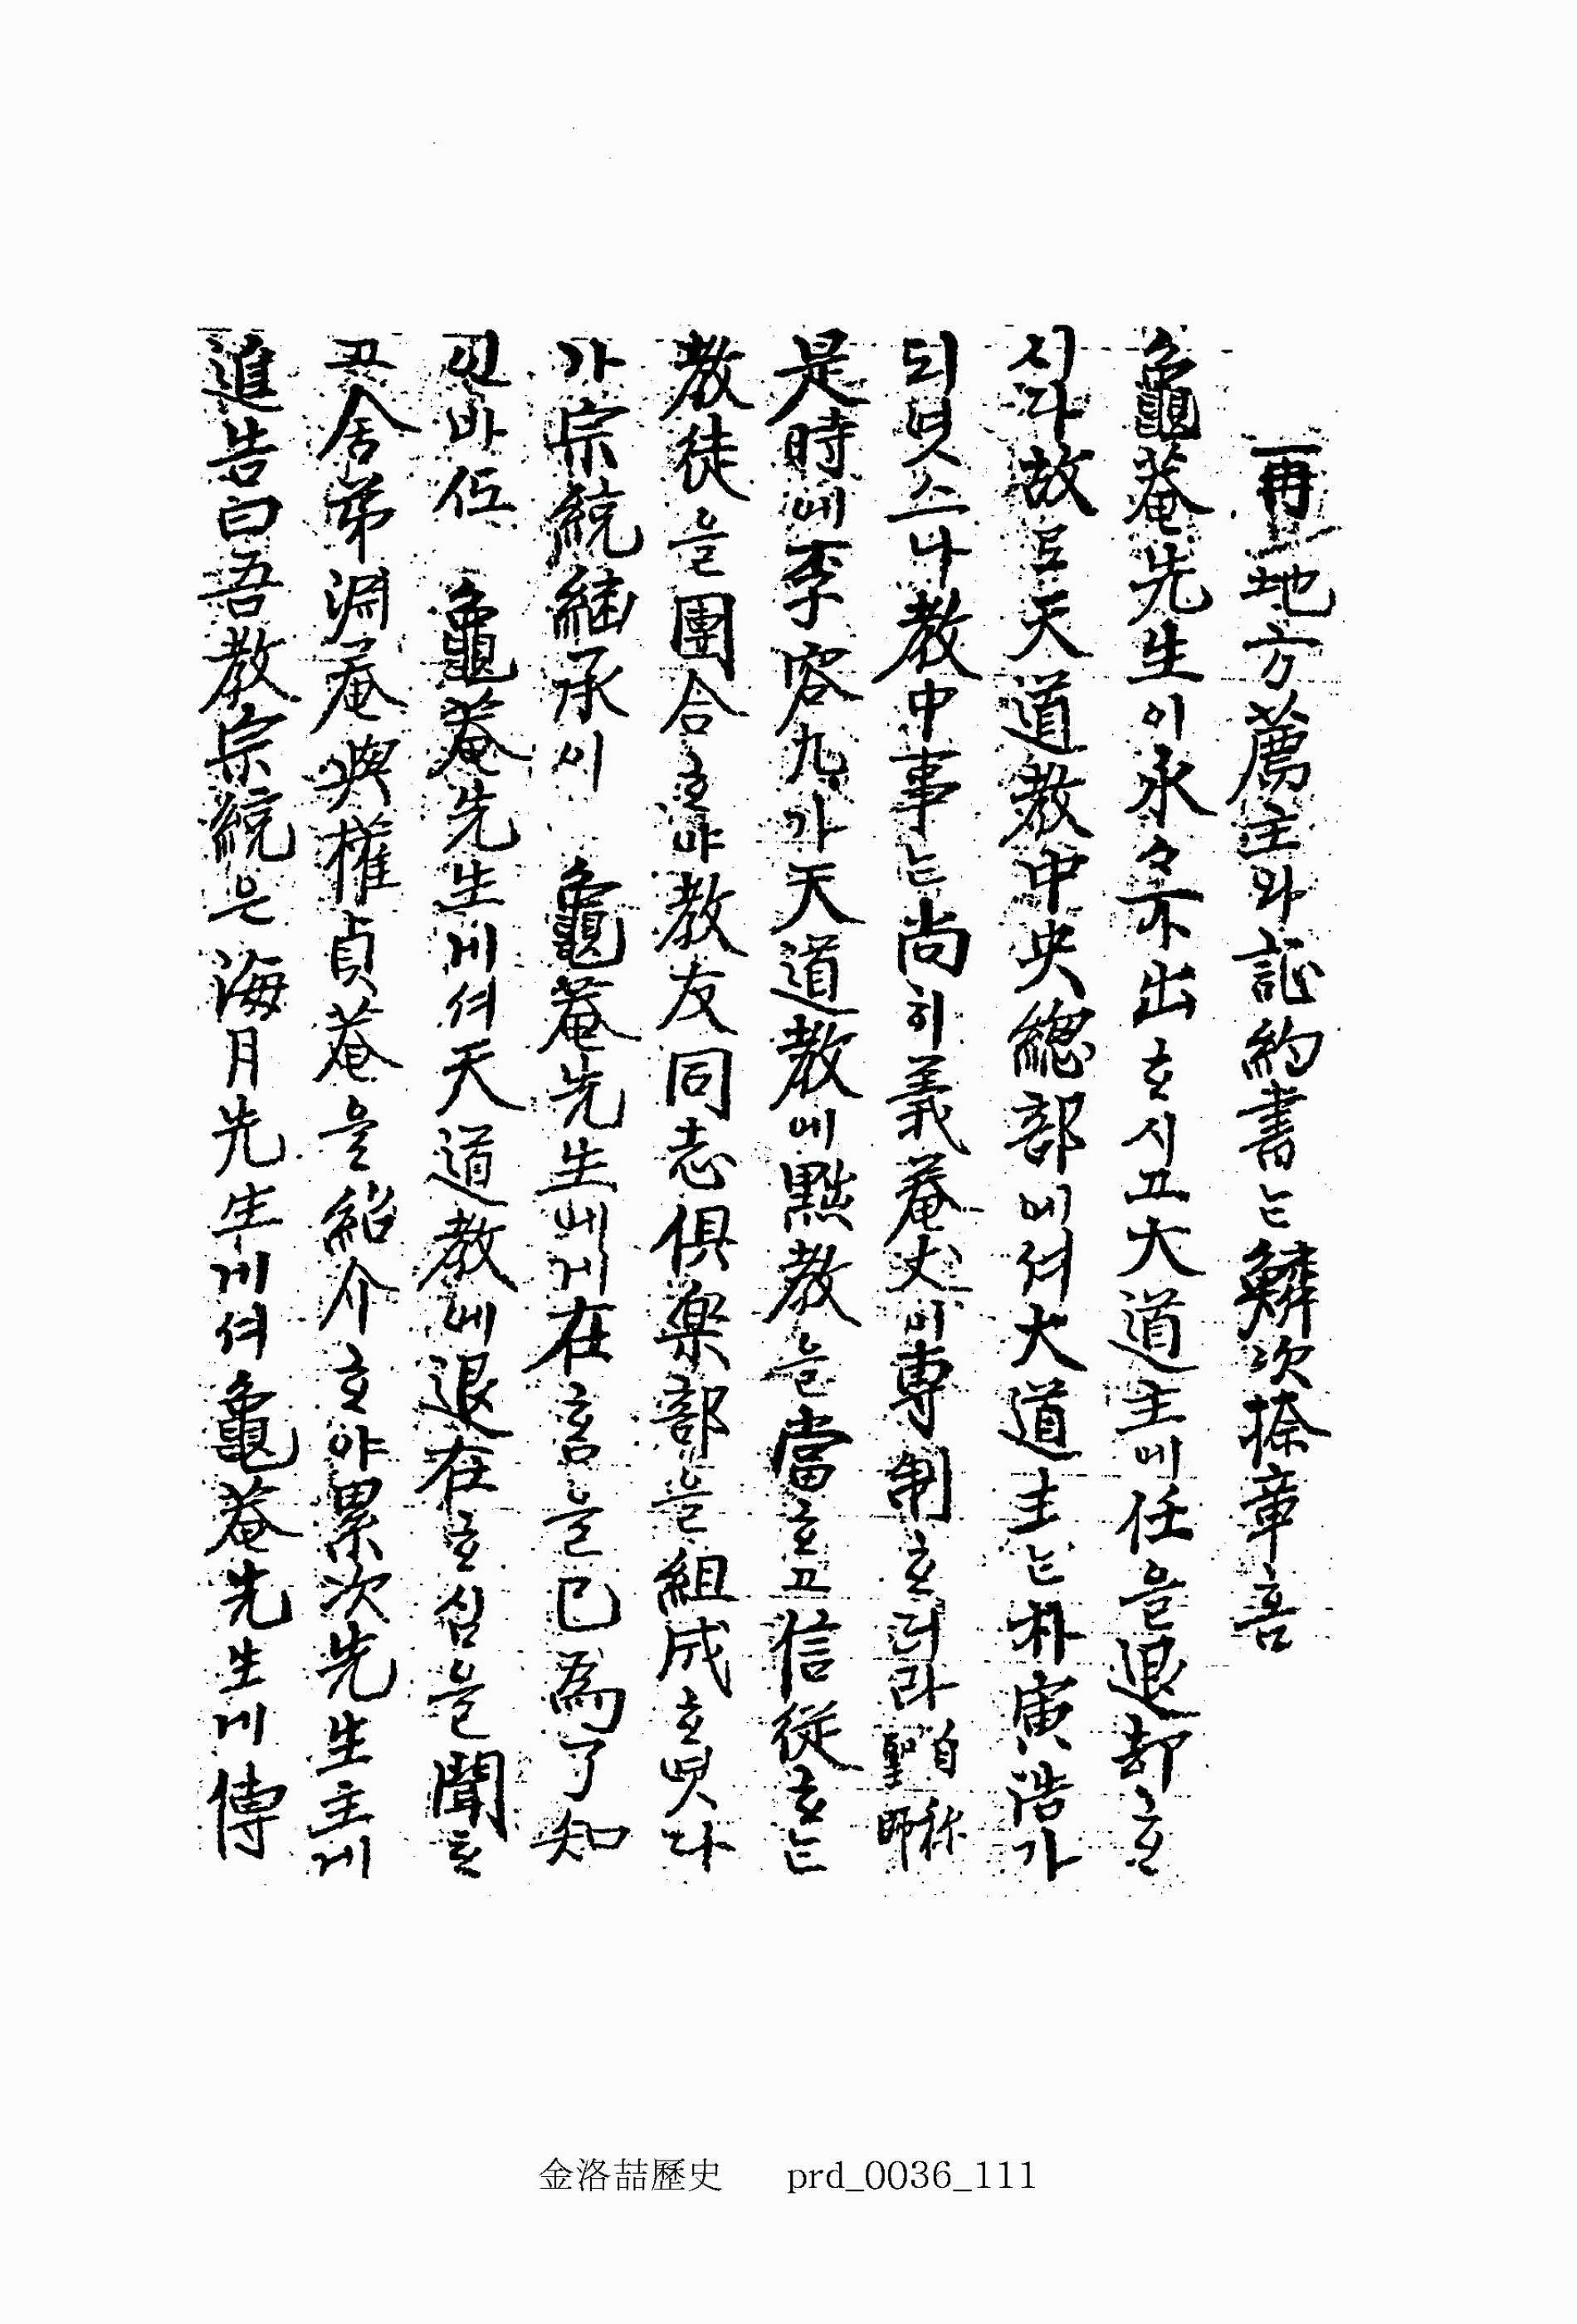 再地方薦主와証約書는鱗次捺章意
龜菴先生이永々不出ᄒᆞ시고大道主에任을退却ᄒᆞ
시다故로天道敎中央總部에셔大道主는朴寅浩가
되엿스나敎中事는尙히義菴丈이專制ᄒᆞ더라自稱聖師
是時에李容九가天道敎에黜敎을當ᄒᆞ고信從ᄒᆞ는
敎徒을團合ᄒᆞ야敎友同志俱樂部을組成ᄒᆞ엿다
가宗統繼承이 龜菴先生ᄭᅦ在ᄒᆞᆷ을已爲了知
ᄒᆞᆫ바 龜菴先生게셔天道敎에退在ᄒᆞ심을聞ᄒᆞ
고舍弟淵菴與權貞菴을紹介ᄒᆞ야累次先生主게
進告曰吾敎宗統은海月先生게셔龜菴先生게傳